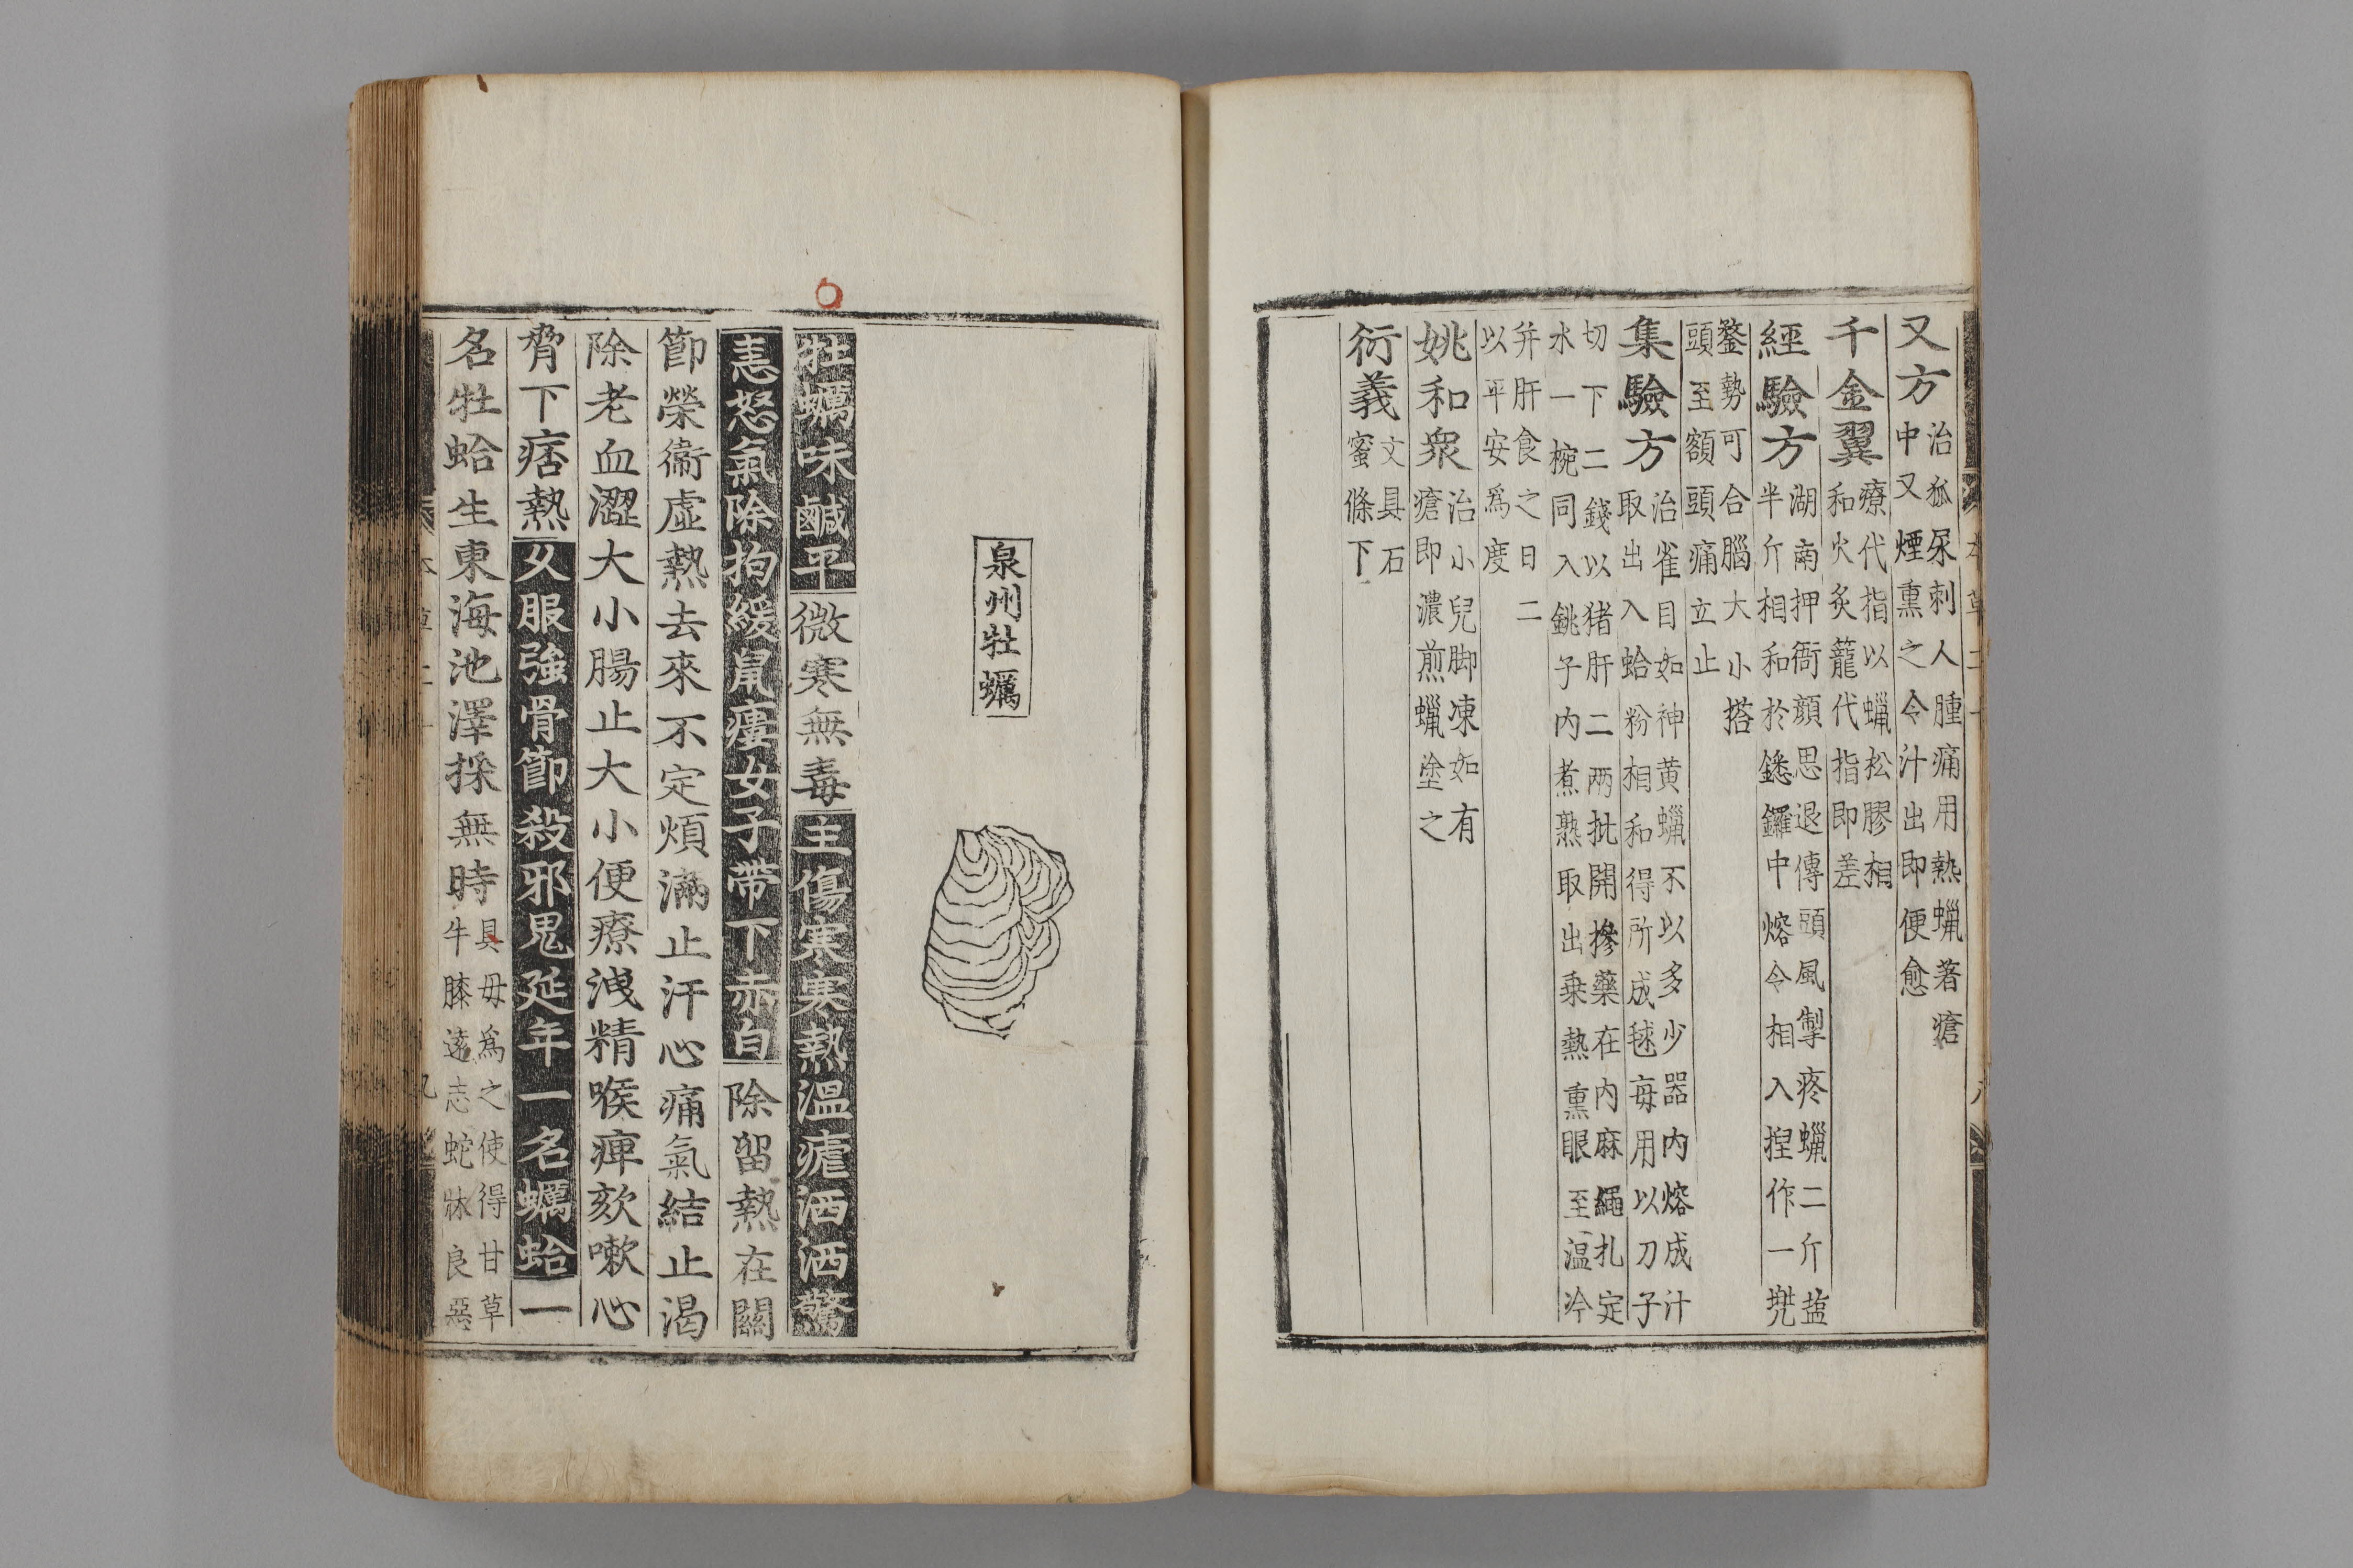 又方治狐尿刺人腫痛用熱蠟著瘡
中又煙熏之令汁出即便愈
千金翼療代指以蠟松膠相
和火炙籠代指即差
經驗方湖南押衙顏思退傳頭風掣疼蠟二斤盐
半斤相和於鏭鑼中熔令相入捏作一兠
鍪勢可合腦大小搭
頭至額頭痛立止
集驗方治雀目如神黄蠟不以多少器内熔成汁
取出入蛤粉相和得所成毬每用以刀子
切下二錢以猪肝二兩批開摻藥在内麻繩扎定
水一椀同入銚子内煮熟取出乗熱熏眼至温冷
并肝食之日二
以平安爲度
姚和衆治小兒脚凍如有
瘡即濃煎蠟塗之
衍義文具石
蜜條下
泉州牡蠣
牡蠣味鹹平微寒無毒主傷寒寒熱溫瘧洒洒驚
恚怒氣除拘緩鼠瘻女子帶下赤白除留熱在關
節榮衞虛熱去來不定煩滿止汗心痛氣結止渴
除老血澀大小腸止大小便療洩精喉痺欬嗽心
脅下痞熱女服強骨節殺邪鬼延年一名蠣蛤一
名牡蛤生東海池澤採無時具毋爲之使得甘草
牛膝遠志蛇牀良惡